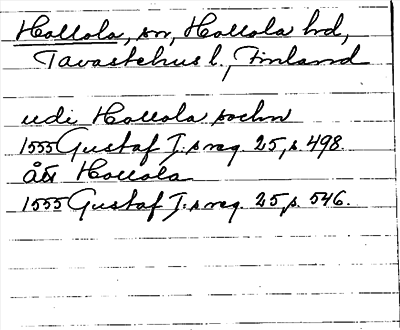 Hollola, sn, Hollola hd,
Tavastehus l., Finland
udi Hollola sochn
1555 Gustaf I:s reg. 25, s. 498.
ått Hollola
1555 Gustaf I:s reg. 25, s. 546.